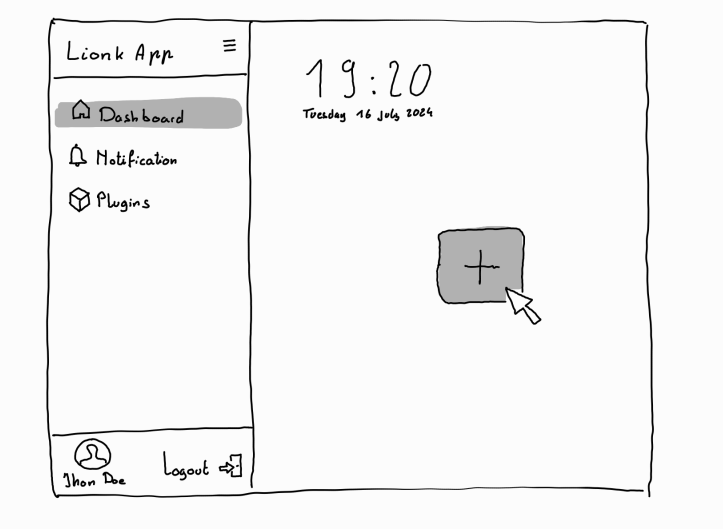 Lionk App
Dashboard
Notification
Plugins
Jhon Doe
Logout
19:20
Tuesday 16 July 2024